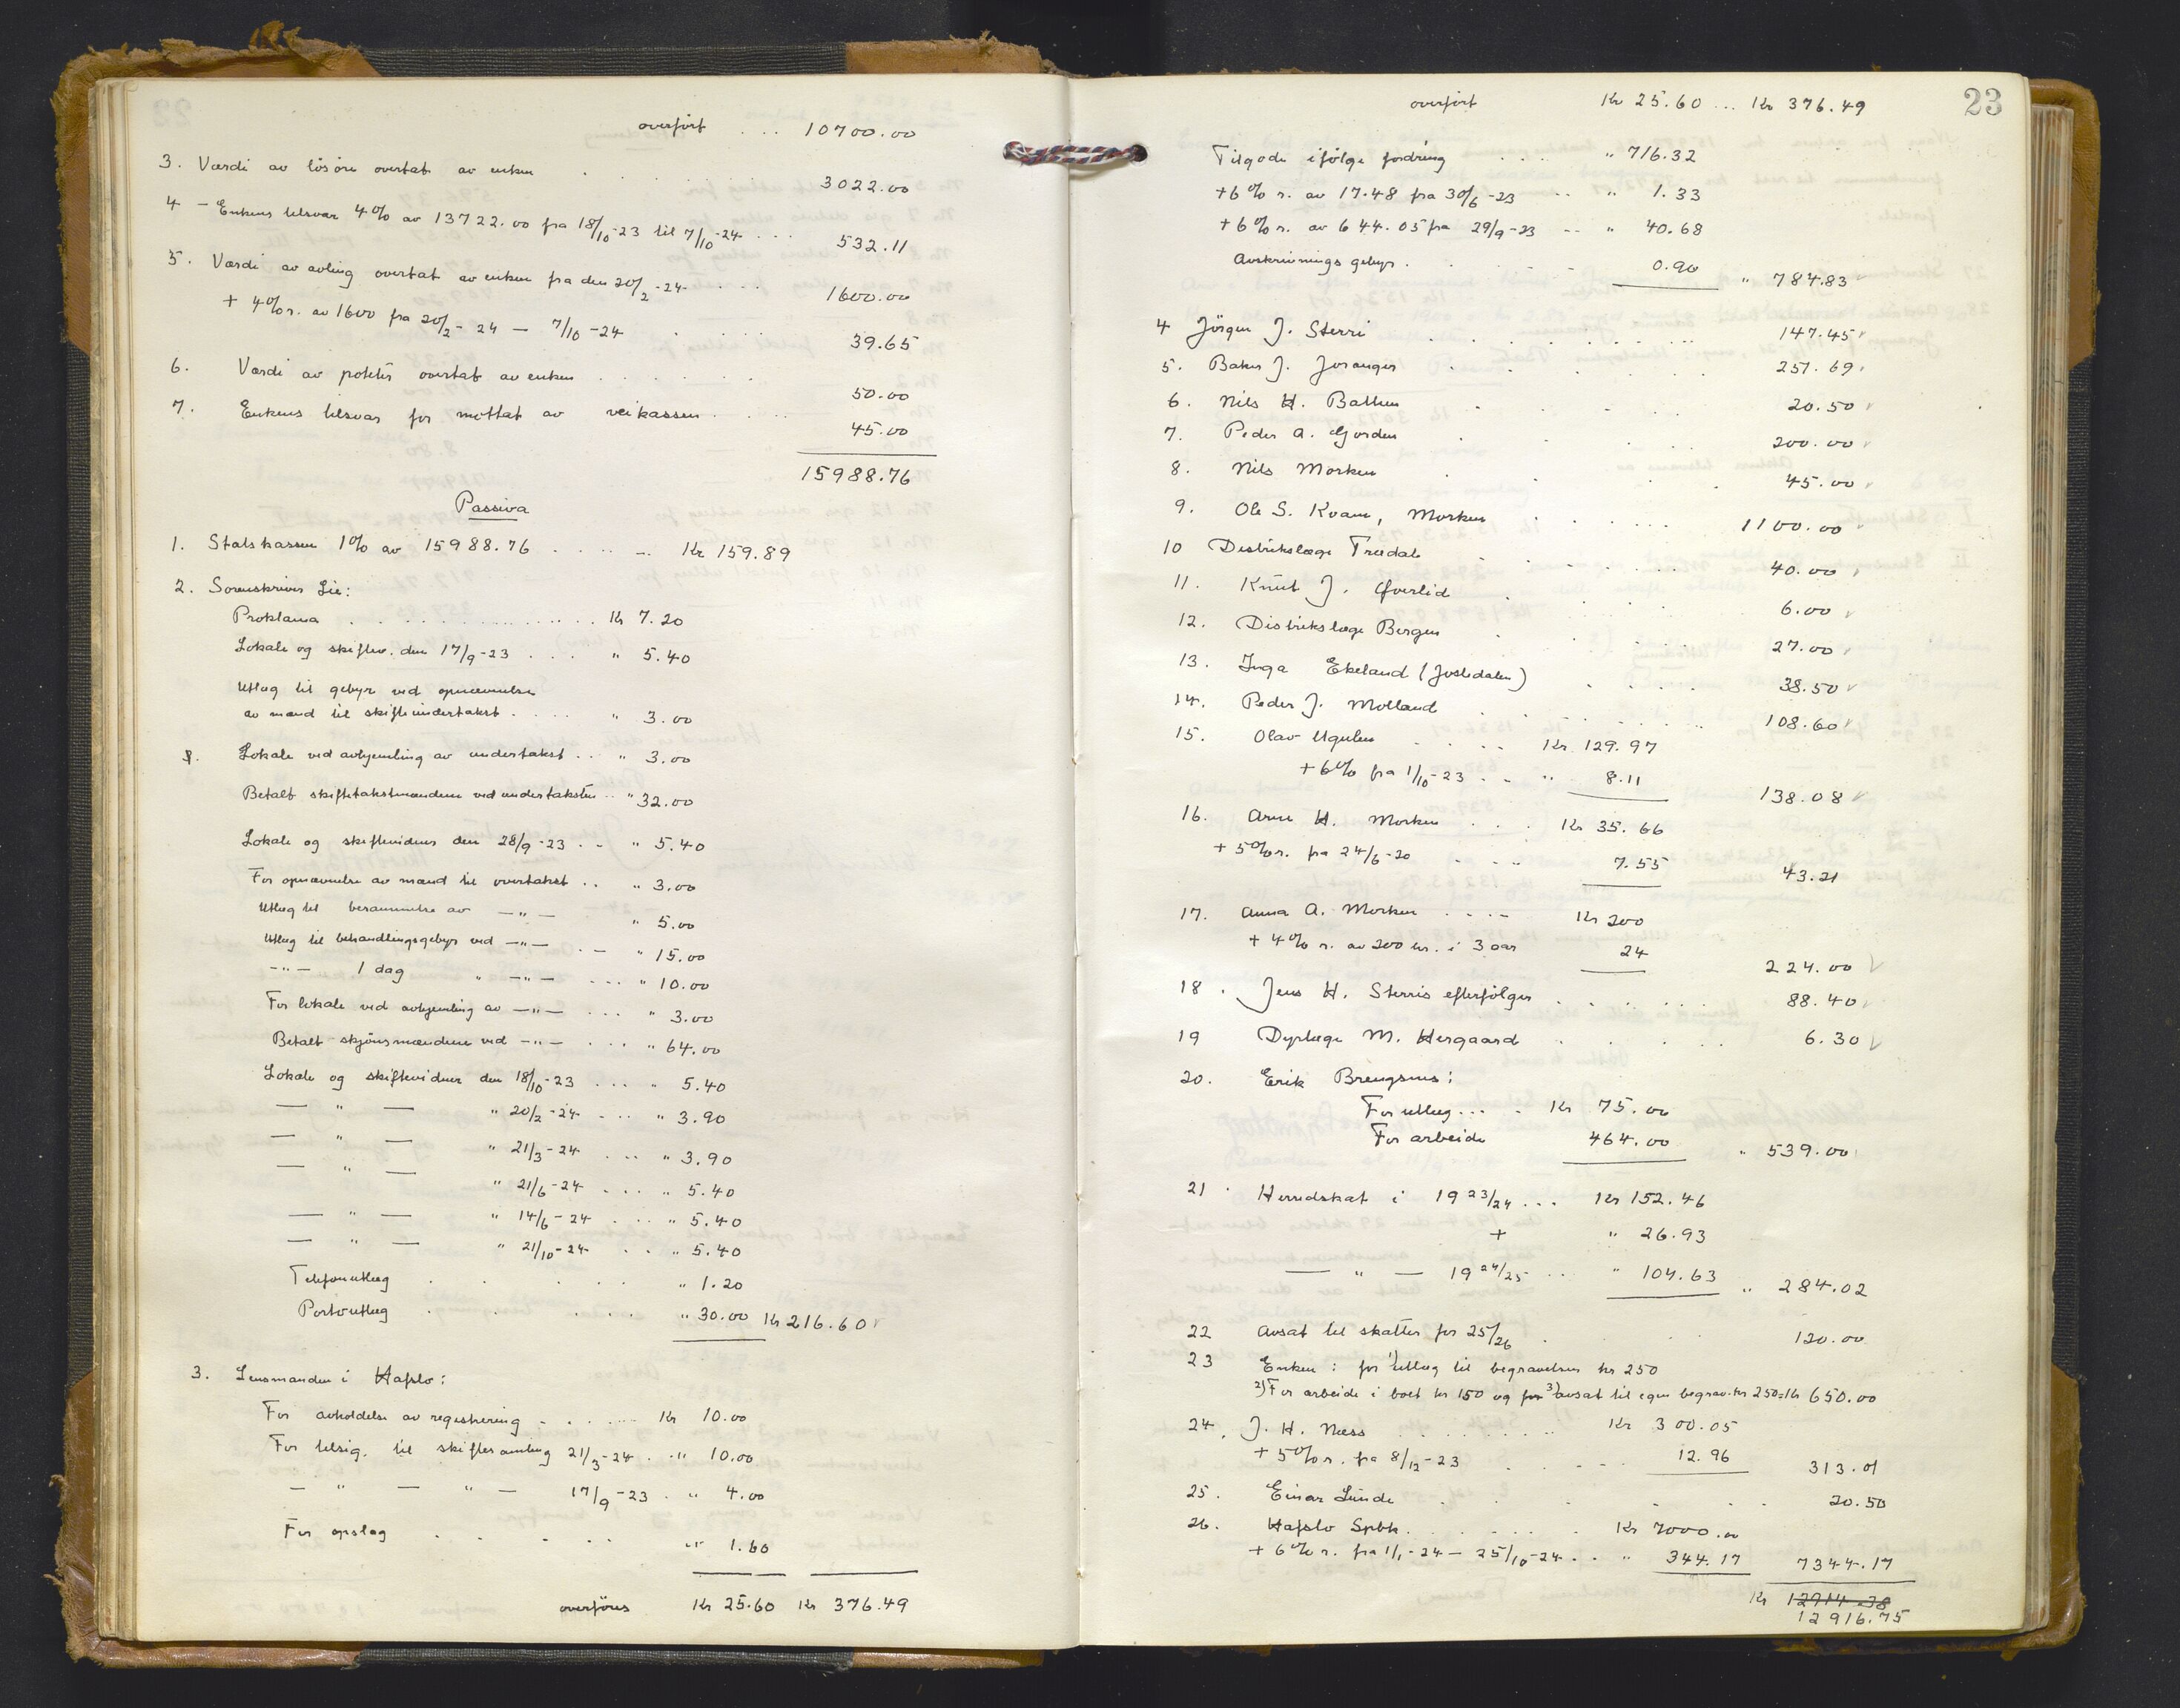 overført ... 10700.00
3. Værdi av lösöre overtat av enken . . . . . . 3022.00
4 - Enkens tilsvar 4% av 13722.00 fra 18/10-23 til 7/10-24 ... 532.11
5. Værdi av avling overtat av enken fra den 20/2-24 .... 1600.00
+ 4% r. av 1600 fra 20/2-24 — 7/10-24 . . . . 39.65
6. Værdi av poteter overtat av enken . . . . . . 50.00
7. Enkens tilsvar for mottat av veikassen . . . . 45.00
15988.76
Passiva
1. Statskassen 1% av 15988.76 . . . . . Kr 159.89
2. Sorenskriver Lie:
Proklama . . . . . . . . . Kr 7.20
Lokale og skiftev. den 17/9-23 . . . " 5.40
Utlæg til gebyr ved opnævnelse
av mænd til skifteundertakst . . . . " 3.00
Lokale ved avhjemling av undertakst . . . " 3.00
Betalt skiftetakstmændene ved undertaksten .. " 32.00
Lokale og skiftevidner den 28/9-23 . . " 5.40
For opnævnelse av mænd til overtakst .. " 3.00
Utlæg til berammelse av —"— " 5.00
Utlæg til behandlingsgebyr ved —"— . — " 15.00
-"- 1 dag " —"— ... " 10.00
For lokale ved avhjemling av —"— ... " 3.00
Betalt skjönsmændene ved —"— ... " 64.00
Lokale og skiftevidner den 18/10-23 ... " 5.40
— " — " 20/2-24 ... " 3.90
— " — " 21/3-24 ... " 3.90
— " — " 21/6-24 ... " 5.40
— " — " 14/6-24 ... " 5.40
— " — " 21/10-24 .. " 5.40
Telefonutlæg . . . . . " 1.20
Portoutlæg . . . . . " 30.00 Kr 216.60
3. Lensmanden i Hafslo:
For avholdelse av registrering . . . . . Kr 10.00
For tilsig. til skiftesamling 21/3-24 . " 10.00
— " — " — 17/9-23 . " 4.00
For opslag . . . . . " 1.60
overføres Kr 25.60 Kr 376.49
23
overført Kr 25.60 ... Kr 376.49
Tilgode ifølge fordring . . . " 716.32
+6% r. av 17.48 fra 30/6-23 ... " 1.33
+6% r. av 644.05 fra 29/9-23 -- " 40.68
Avskrivnings gebyr . . . . . 0.90 " 784.83
4 Jörgen J. Sterri . . . . . . . 147.45
5. Baker J. Joranger . . . . . 257.69
6. Nils H. Bathen . . . . 20.50
7. Peder A. Gjorden . . . . 200.00
8. Nils Morken . . . 45.00
9. Ole S. Kvam, Morken . . . . . 1100.00
10 Distrikslæge Tredal . . . . . 40.00
11. Knut J. Överlid . . . . . 6.00
12. Distrikslæge Bergen . . . . . 27.00
13. Inga Ekeland (Jostedalen) . . . . 38.50
14. Peder J. Molland . . . . . . 108.60
15. Olav Ugulen . . . . Kr. 129.97
+6% fra 1/10-23 . . " 8.11 138.08
16. Arne H. Morken . . . Kr 35.66
+ 5% r. fra 24/6-20 . . " 7.55 43.21
17. Anna A. Morken . . . . Kr 200
+ 4% r. av 200 kr. i 3 aar 24 224.00
18. Jens H. Sterris efterfölger . . . . . . 88.40
19 Dyrlæge M. Hergaard . . . . . 6.30
20. Erik Brengsnes:
For utlæg ... . Kr 75.00
For arbeide 464.00 " 539.00
21. Herredskat i 1923/24 ... Kr 152.46
+ " 26.93
— " — 1924/25 .. " 104.63 " 284.02
22 Avsat til skatter for 25/26 . . . . 120.00
23 Enken: for 1) utlæg til begravelsen kr 250
2) For arbeide i boet kr 150 og for 3) avsat til egen begrav. kr 250 = Kr 650.00
24. J. H. Næss . . . . . . . . Kr 300.05
+ 5% r. fra 8/12-23 . . . . . 12.96 313.01
25. Einar Linde . . . . . . 20.50
26. Hafslo Spbk. . . . . . . Kr 7000.00
+ 6% r. fra 1/1-24 — 25/10-24 . . " 344.17 7344.17
Kr 12914.38
12916.75